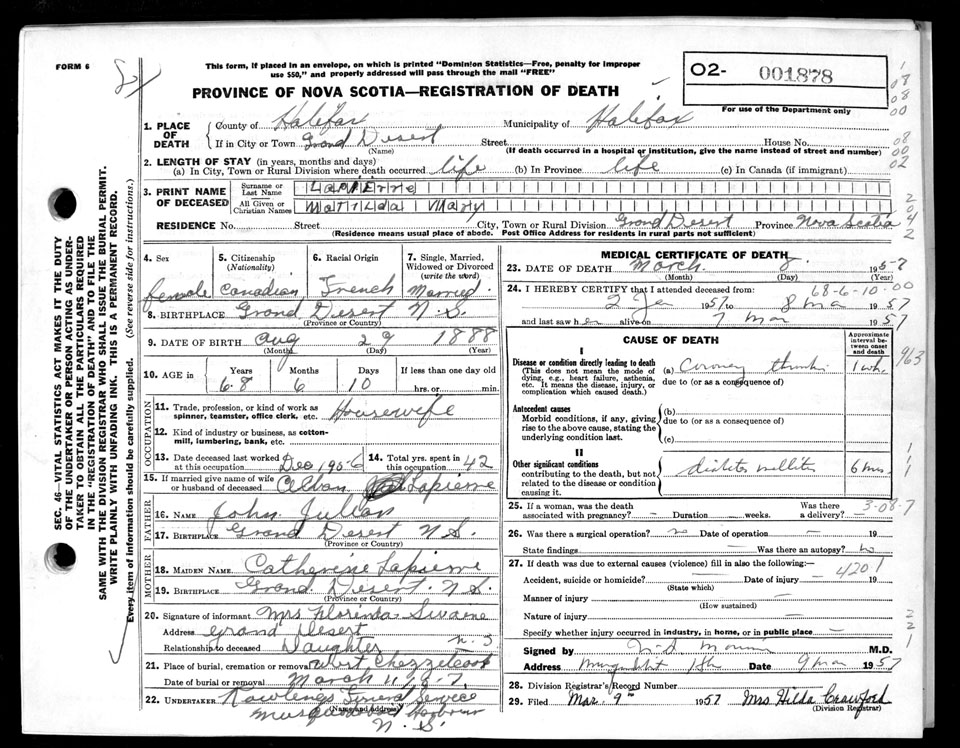 FORM 6
This form, if placed in an envelope, on which is printed "Dominion Statistics—Free, penalty for improper
use $50," and properly addressed will pass through the mail "FREE"
O2- 001878
For use of the Department only
PROVINCE OF NOVA SCOTIA—REGISTRATION OF DEATH
1. PLACE OF DEATH
County of Halifax Municipality of Halifax
If in City or Town Grand Desert Street House No.
(Name) (If death occurred in a hospital or institution, give the name instead of street and number)
2. LENGTH OF STAY (in years, months and days)
(a) In City, Town or Rural Division where death occurred life (b) In Province life (c) In Canada (if immigrant)
3. PRINT NAME OF DECEASED
Surname or Last Name Lapierre
All Given or Christian Names Matilda Mary
RESIDENCE No. Street City, Town or Rural Division Grand Desert Province Nova Scotia
(Residence means usual place of abode. Post Office Address for residents in rural parts not sufficient)
4. Sex female
5. Citizenship (Nationality) Canadian
6. Racial Origin French
7. Single, Married, Widowed or Divorced (write the word) Married
8. BIRTHPLACE Grand Desert N.S.
(Province or Country)
9. DATE OF BIRTH Aug 29 1888
(Month) (Day) (Year)
10. AGE in Years 68 Months 6 Days 10 If less than one day old hrs. or min.
OCCUPATION
11. Trade, profession, or kind of work as spinner, teamster, office clerk, etc. Housewife
12. Kind of industry or business, as cotton-mill, lumbering, bank, etc.
13. Date deceased last worked at this occupation Dec 1956
14. Total yrs. spent in this occupation 42
15. If married give name of wife or husband of deceased Alban Lapierre
FATHER
16. NAME John Julian
17. BIRTHPLACE Grand Desert N.S.
(Province or Country)
MOTHER
18. MAIDEN NAME Catherine Lapierre
19. BIRTHPLACE Grand Desert N.S.
(Province or Country)
20. Signature of informant Mrs Florinda
Address Grand Desert
Relationship to deceased Daughter N.S
21. Place of burial, cremation or removal West Chezzetcook
Date of burial or removal March 11,
22. UNDERTAKER Rawlings Funeral Service
(Name and address) Musquodoboit Harbour
N.S.
MEDICAL CERTIFICATE OF DEATH
23. DATE OF DEATH March 8 1957
(Month) (Day) (Year)
68-6-10-00
24. I HEREBY CERTIFY that I attended deceased from:
2 Jan 1957 to 8 Mar 1957
and last saw her alive on 7 Mar 1957
CAUSE OF DEATH
Approximate interval between onset and death
I
Disease or condition directly leading to death
(This does not mean the mode of dying, e.g., heart failure, asthenia, etc. It means the disease, injury, or complication which caused death.)
(a) Coronary 1 wk.
due to (or as a consequence of)
Antecedent causes
Morbid conditions, if any, giving rise to the above cause, stating the underlying condition last.
(b)
due to (or as a consequence of)
(c)
II
Other significant conditions
contributing to the death, but not related to the disease or condition causing it.
diabetes mellitus 6 mos.
25. If a woman, was the death associated with pregnancy? – Duration weeks. Was there a delivery?
26. Was there a surgical operation? no Date of operation – 19
State findings Was there an autopsy? no
27. If death was due to external causes (violence) fill in also the following:—
4201
Accident, suicide or homicide? Date of injury 19
(State which)
Manner of injury
(How sustained)
Nature of injury
Specify whether injury occurred in industry, in home, or in public place
Signed by M.D.
Address Date 9 Mar 1957
28. Division Registrar's Record Number
29. Filed Mar. 9th 1957 Mrs Hilda Crawford
(Division Registrar)
SEC. 46—VITAL STATISTICS ACT MAKES IT THE DUTY
OF THE UNDERTAKER OR PERSON ACTING AS UNDER-
TAKER TO OBTAIN ALL THE PARTICULARS REQUIRED
IN THE "REGISTRATION OF DEATH" AND TO FILE THE
SAME WITH THE DIVISION REGISTRAR WHO SHALL ISSUE THE BURIAL PERMIT.
WRITE PLAINLY WITH UNFADING INK. THIS IS A PERMANENT RECORD.
Every item of information should be carefully supplied. (See reverse side for instructions.)